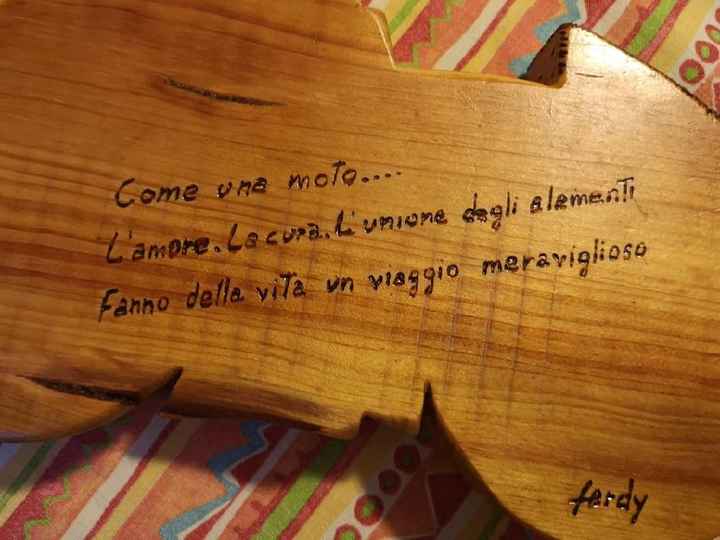 Come una moto....
L'amore. La cura. L'unione degli elementi
Fanno della vita un viaggio meraviglioso
ferdy